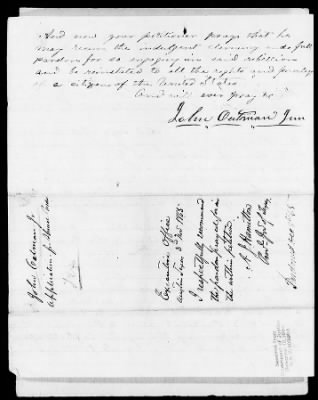 And now your petitioner prays that he
may receive the indulgent clemency and full
pardon for so engaging in said rebellion
and be reinstated to all the rights and privileges
of a citizen of the United States
And will ever pray &c
John Oatman Jun
John Oatman Jr.
Application for
Executive Office
Austin Texas 3d Nov 1865.
I respectfully recommend
the pardon prayed for in
the within petition
A. J. Hamilton
Prov. Gov. of Texas
1865